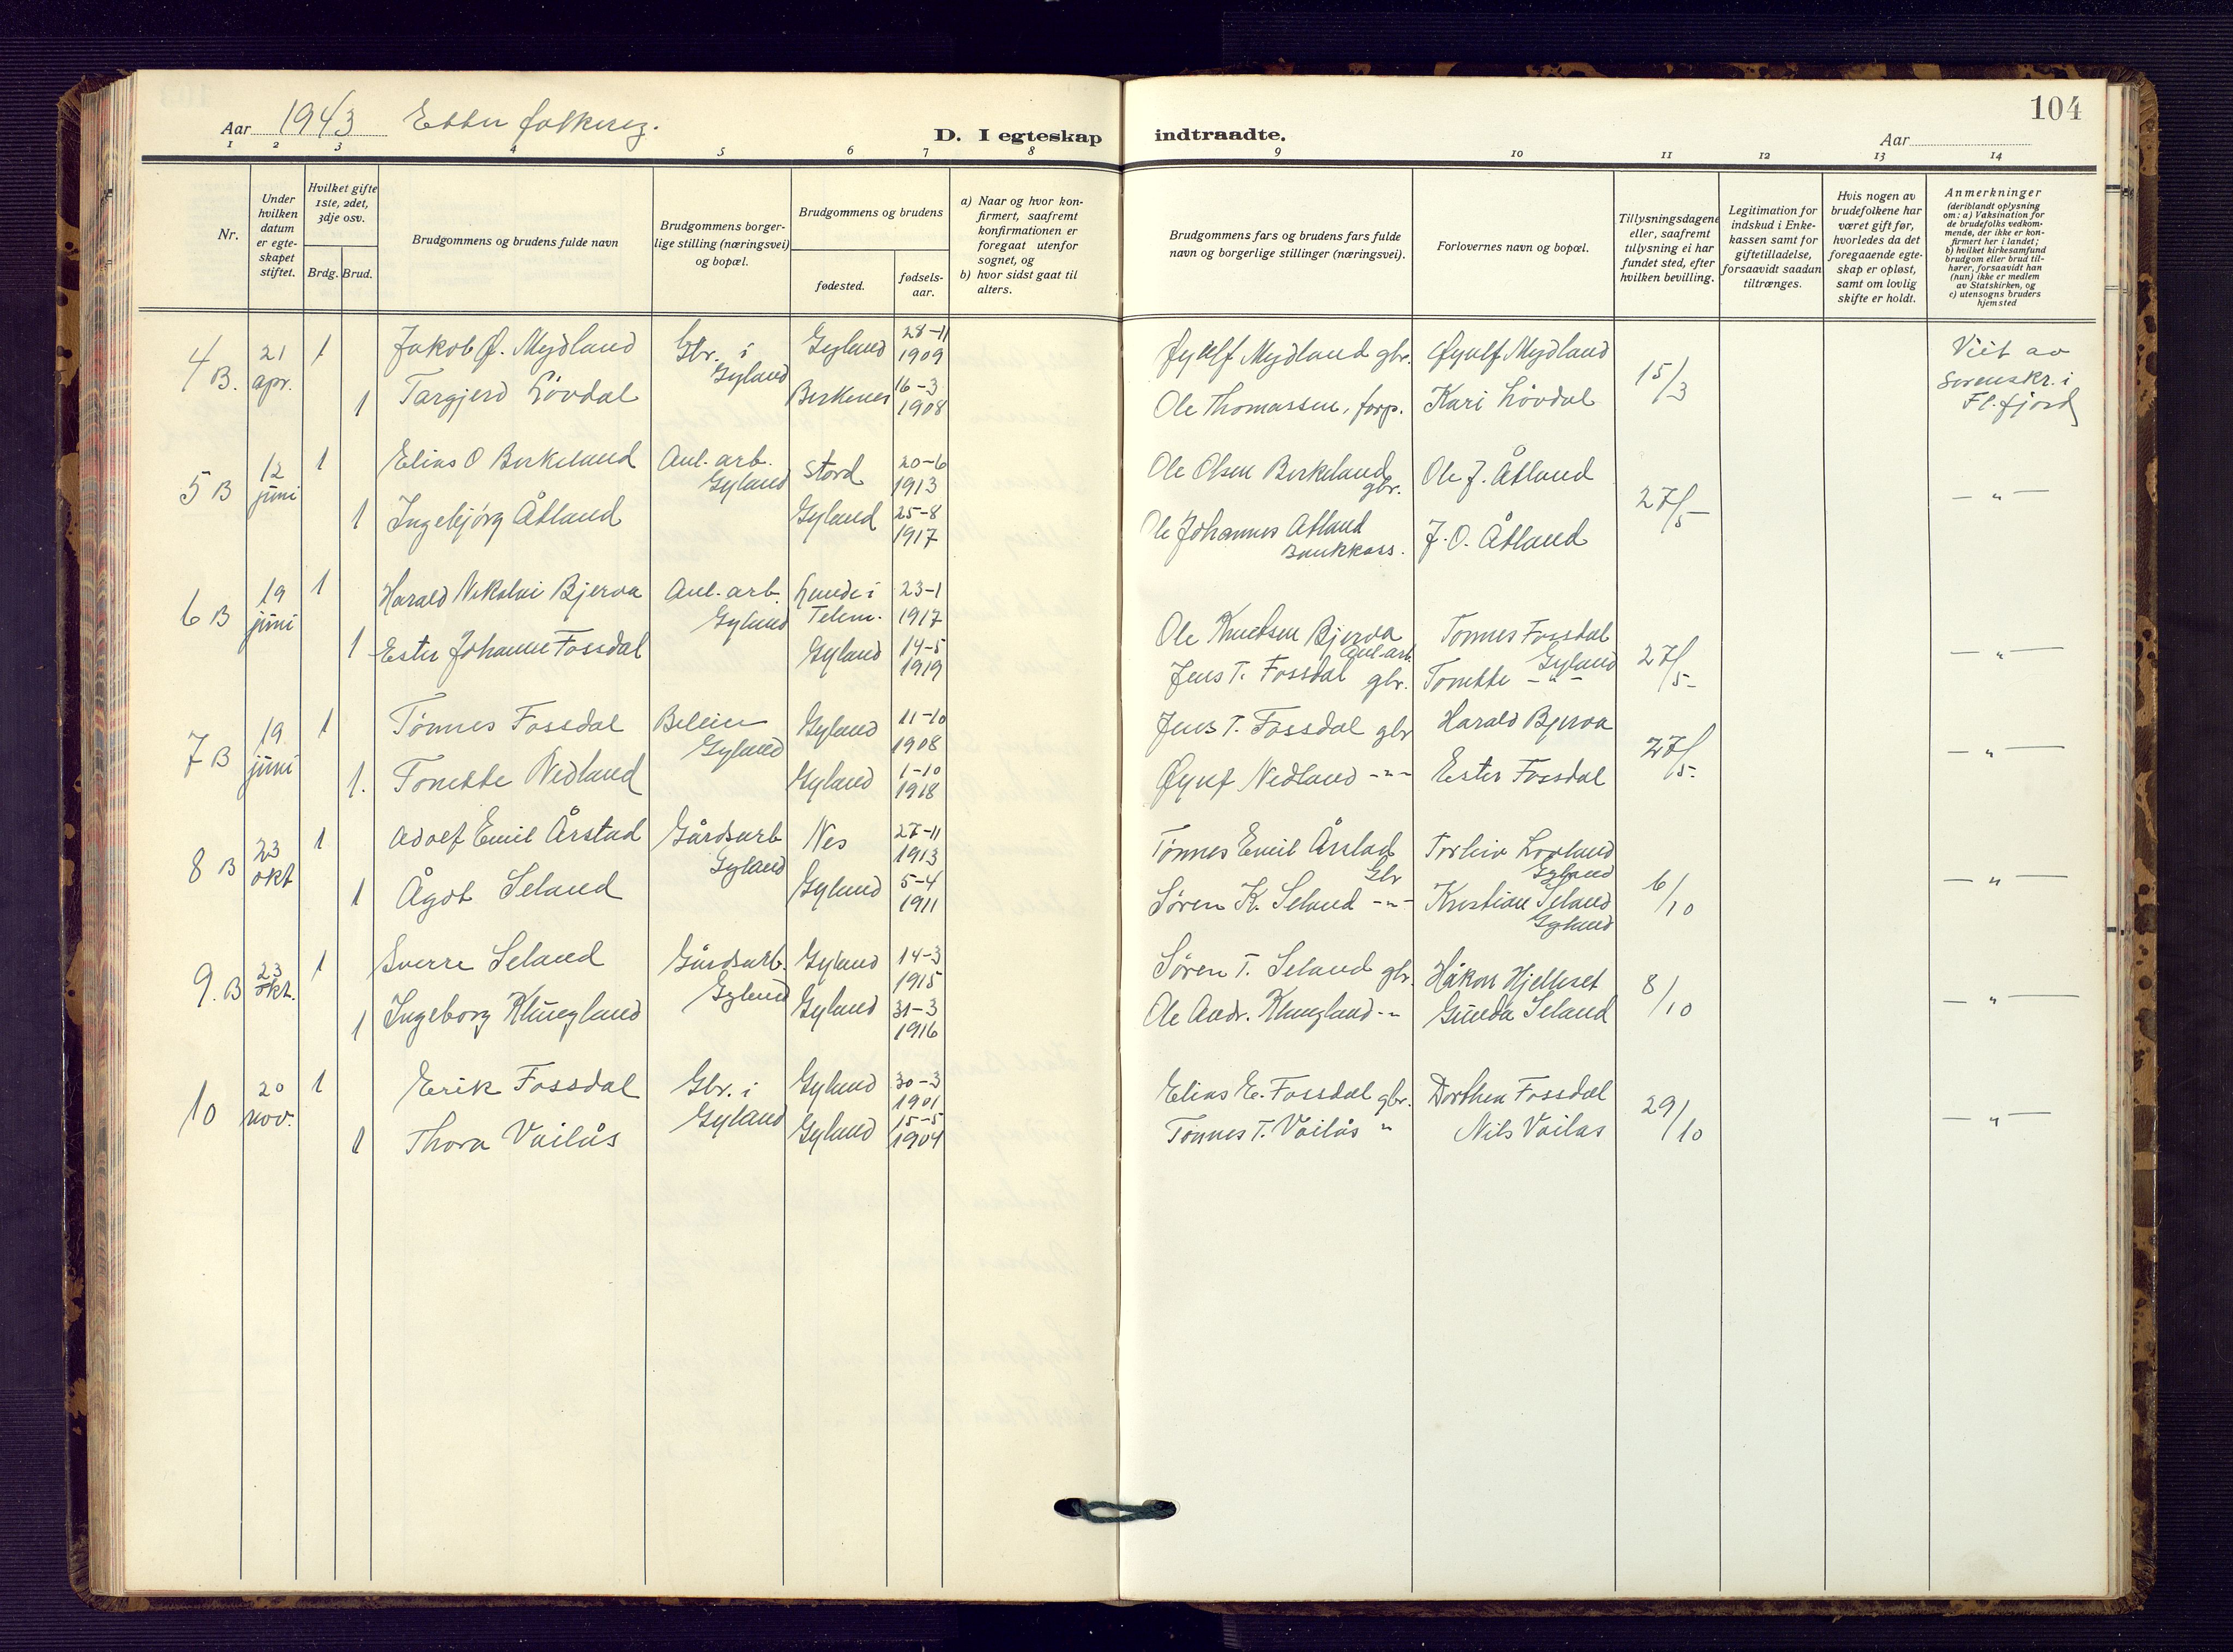 104
Aar 1943 Etter folkereg. D. I egteskap indtraadte. Aar
1 2 3 4 5 6 7 8 9 10 11 12 13 14
Nr.
Under hvilken datum er egte-skapet stiftet.
Hvilket gifte 1ste, 2det, 3dje osv.
Brdg. Brud.
Brudgommens og brudens fulde navn
Brudgommens borger-lige stilling (næringsvei) og bopæl.
Brudgommens og brudens
fødested.
fødsels-aar.
a) Naar og hvor kon-firmert, saafremt konfirmationen er foregaat utenfor sognet, og
b) hvor sidst gaat til alters.
Brudgommens fars og brudens fars fulde navn og borgerlige stillinger (næringsvei).
Forlovernes navn og bopæl.
Tillysningsdagene eller, saafremt tillysning ei har fundet sted, efter hvilken bevilling.
Legitimation for indskud i Enke-kassen samt for giftetilladelse, forsaavidt saadan tiltrænges.
Hvis nogen av brudefolkene har været gift før, hvorledes da det foregaaende egte-skap er opløst, samt om lovlig skifte er holdt.
Anmerkninger
(deriblandt oplysning om: a) Vaksination for de brudefolks vedkom-mende, der ikke er kon-firmert her i landet; b) hvilket kirkesamfund brudgom eller brud til-hører, forsaavidt han (hun) ikke er medlem av Statskirken, og c) utensogns bruders hjemsted
4 B. 21 apr. 1 Jakob Ø. Mydland Gbr. i Gyland Gyland 28-11 1909 Øyulf Mydland gbr. Øyulf Mydland 15/3 Viet av Sorenskr. i Fl.fjord
1 Targjerd Lövdal Birkenes 16-3 1908 Ole Thomassen, forp. Kari Lövdal
5 B 12 juni 1 Elias O Birkeland Anl. arb. Gyland Stord 20-6 1913 Ole Olsen Birkeland gbr. Ole J. Åtland 27/5 — " —
1 Ingebjörg Åtland Gyland 25-8 1917 Ole Johannes Åtland Bankkass. J. O. Åtland
6 B 19 juni 1 Harald Nikolai Bjerva Anl. arb. Gyland Lunde i Telem. 23-1 1917 Ole Knutsen Bjerva Anl-arb. Tönnes Fossdal Gyland 27/5 — " —
1 Ester Johanne Fossdal Gyland 14-5 1919 Jens T. Fossdal gbr. Tomette — " —
7 B 19 juni 1 Tönnes Fossdal Gyland Gyland 11-10 1908 Jens T. Fossdal gbr Harald Bjerva 27/5 — " —
1. Tomette Nedland Gyland 1-10 1918 Øyulf Nedland -"- Ester Fossdal
8 B 23 okt 1 Adolf Emil Årstad Gårdsarb Gyland Nes 27-11 1913 Tönnes Emil Årstad Gbr Torleiv Lovland Gyland 6/10 — " —
1 Ågot Seland Gyland 5-4 1911 Sören K. Seland -"- Kristian Seland Gyland
9. B 23 okt. 1 Sverre Seland Gårdsarb. Gyland Gyland 14-3 1915 Sören T. Seland gbr. Håkon Hjelleset 8/10 — " —
1 Ingeborg Klungland Gyland 31-3 1916 Ole Andr. Klungland -" Gunda Seland
10 20 nov. 1 Erik Fossdal Gbr. i Gyland Gyland 30-3 1901 Elias E. Fossdal gbr. Dorthea Fossdal 29/10 — " —
1 Thora Vailås Gyland 15-5 1904 Tönnes T. Vailås " Nils Vailas